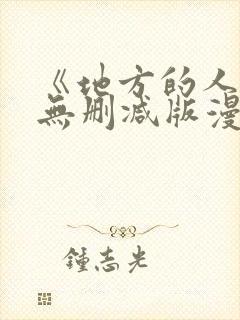 《地方的人
無删减版漫
鍾志光